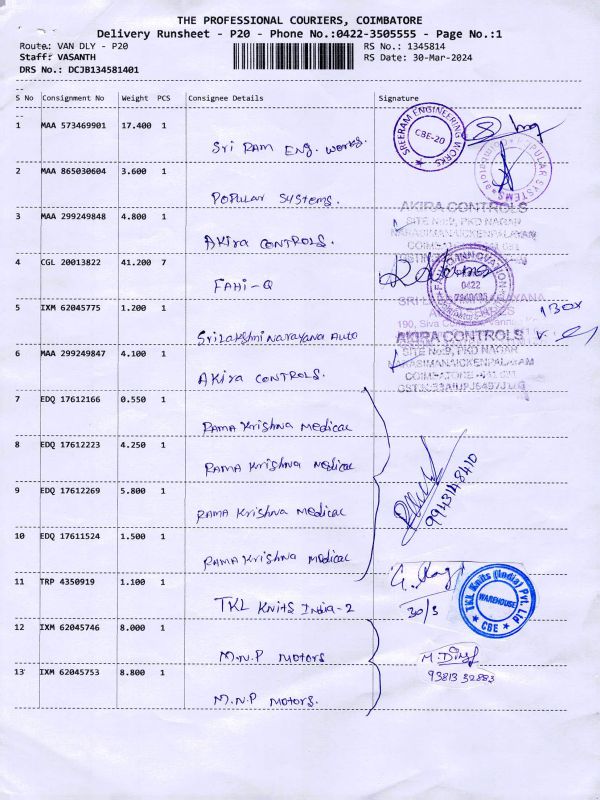 THE PROFESSIONAL COURIERS, COIMBATORE
Delivery Runsheet - P20 - Phone No.:0422-3505555 - Page No.:1
Route: VAN DLY - P20 RS No.: 1345814
Staff: VASANTH RS Date: 30-Mar-2024
DRS No.: DCJB134581401
S No Consignment No Weight PCS Consignee Details Signature
1 MAA 573469901 17.400 1
Sri Ram Eng. Works.
SREERAM ENGINEERING WORKS
CBE-20
2 MAA 865030604 3.600 1
Popular Systems.
POPULAR SYSTEMS
3 MAA 299249848 4.800 1
Akira Controls.
AKIRA CONTROLS
SITE No:9, PKD NAGAR
NARASIMANAICKENPALAYAM
4 CGL 20013822 41.200 7
FAHI-Q
INNOVATION
0422
5 IXM 62045775 1.200 1
Srilakshmi Narayana Auto
1 Box
190, Siva
6 MAA 299249847 4.100 1
Akira Controls.
AKIRA CONTROLS
SITE No:9, PKD NAGAR
NARASIMANAICKENPALAYAM
7 EDQ 17612166 0.550 1
Rama Krishna Medical
8 EDQ 17612223 4.250 1
Rama Krishna Medical
9 EDQ 17612269 5.800 1
Rama Krishna Medical
9943148410
10 EDQ 17611524 1.500 1
Rama Krishna Medical
11 TRP 4350919 1.100 1
TKL Knits India-2
30/3
TKL Knits (India) Pvt. Ltd
WAREHOUSE
CBE
12 IXM 62045746 8.000 1
M.N.P Motors
13 IXM 62045753 8.800 1
M.N.P Motors.
9381332883